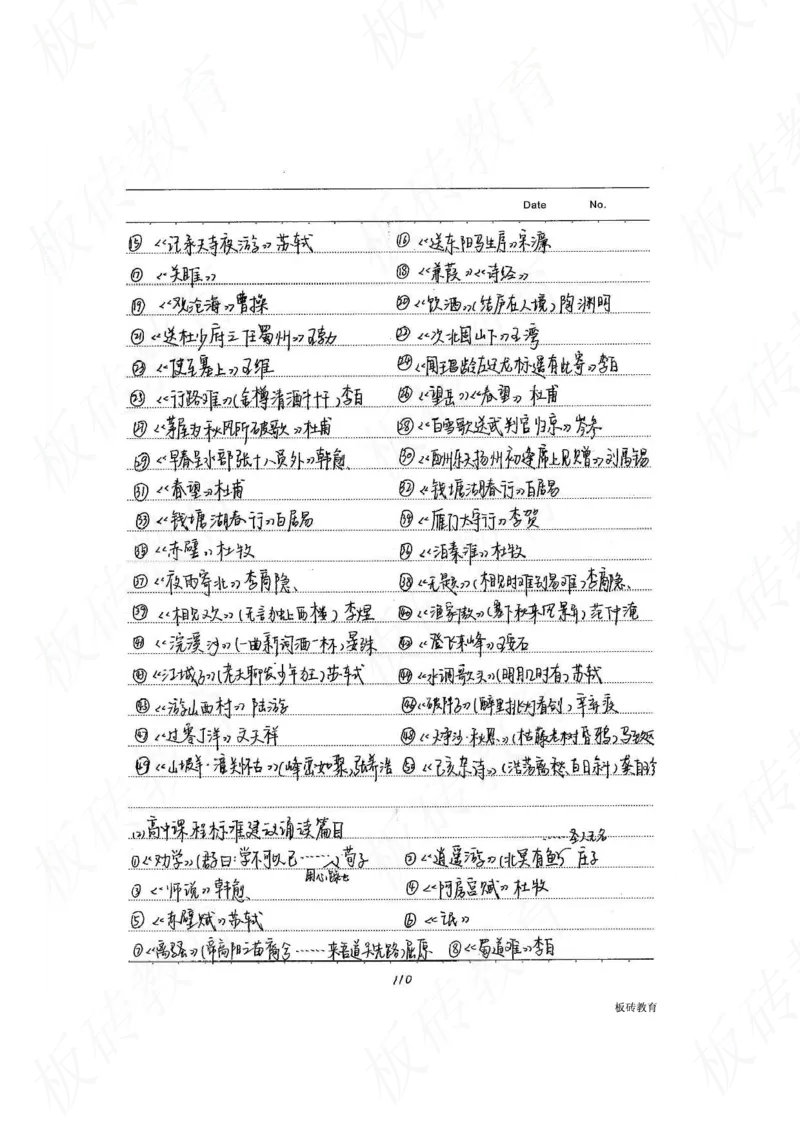 Date No.
⑮ 《记承天寺夜游》苏轼 ⑯ 《送东阳马生序》宋濂
⑰ 《关雎》 ⑱ 《蒹葭》《诗经》
⑲ 《观沧海》曹操 ⑳ 《饮酒》(结庐在人境) 陶渊明
㉑ 《送杜少府之任蜀州》王勃 ㉒ 《次北固山下》王湾
㉓ 《使至塞上》王维 ㉔ 《闻王昌龄左迁龙标遥有此寄》李白
㉕ 《行路难》(金樽清酒斗十千) 李白 ㉖ 《望岳》《春望》杜甫
㉗ 《茅屋为秋风所破歌》杜甫 ㉘ 《白雪歌送武判官归京》岑参
㉙ 《早春呈水部张十八员外》韩愈 ㉚ 《酬乐天扬州初逢席上见赠》刘禹锡
㉛ 《春望》杜甫 ㉜ 《钱塘湖春行》白居易
㉝ 《钱塘湖春行》白居易 ㉞ 《雁门太守行》李贺
㉟ 《赤壁》杜牧 《泊秦淮》杜牧
㊲ 《夜雨寄北》李商隐 ㊳ 《无题》(相见时难别易难) 李商隐
㊴ 《相见欢》(无言独上西楼) 李煜 ㊵ 《渔家傲》(塞下秋来风景异) 范仲淹
《浣溪沙》(一曲新词酒一杯) 晏殊 《登飞来峰》王安石
《江城子》(老夫聊发少年狂) 苏轼 《水调歌头》(明月几时有) 苏轼
《游山西村》陆游 《破阵子》(醉里挑灯看剑) 辛弃疾
《过零丁洋》文天祥 《天净沙·秋思》(枯藤老树昏鸦) 马致远
《山坡羊·潼关怀古》(峰峦如聚) 张养浩 《己亥杂诗》(浩荡离愁白日斜) 龚自珍
(2) 高中课程标准建议诵读篇目
……圣人无名
① 《劝学》(君子曰:学不可以已……) 荀子 ② 《逍遥游》(北冥有鱼 庄子
用心躁也
③ 《师说》韩愈 ④ 《阿房宫赋》杜牧
⑤ 《赤壁赋》苏轼 ⑥ 《氓》
⑦ 《离骚》(帝高阳之苗裔兮……来吾道夫先路) 屈原 ⑧ 《蜀道难》李白
110
板砖教育